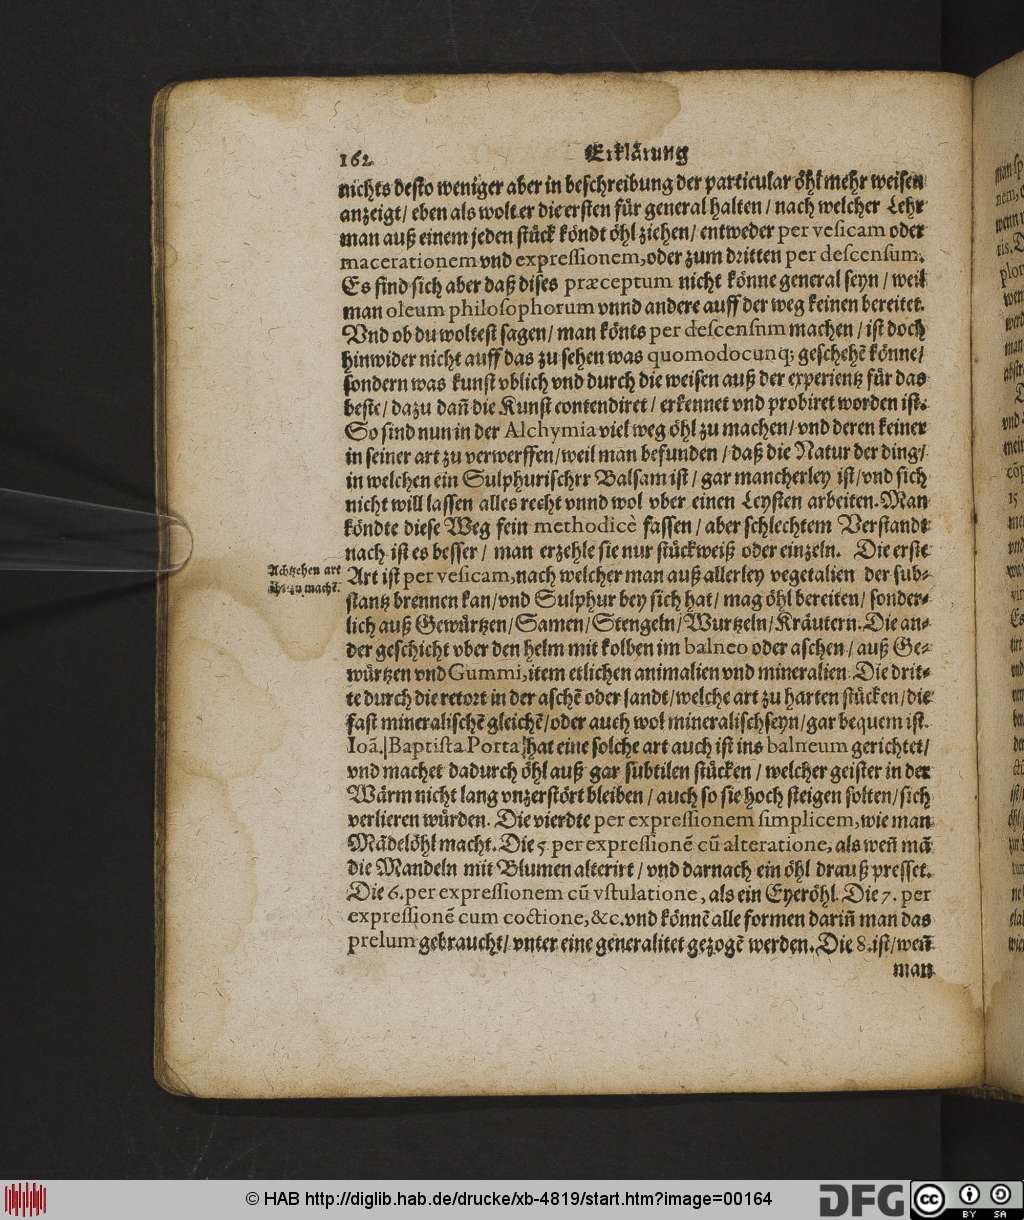 162 Erklärung
nichts desto weniger aber in beschreibung der particular öhl mehr weisen
anzeigt/ eben als wolt er die ersten für general halten/ nach welcher Lehr
man auß einem jeden stück köndt öhl ziehen/ entweder per vesicam oder
macerationem vnd expressionem, oder zum dritten per descensum.
Es find sich aber daß dises præceptum nicht könne general seyn/ weil
man oleum philosophorum vnnd andere auff der weg keinen bereitet.
Vnd ob du woltest sagen/ man könts per descensum machen/ ist doch
hinwider nicht auff das zu sehen was quomodocunq; geschehē könne/
sondern was kunst vblich vnd durch die weisen auß der experientz für das
beste/ dazu dañ die Kunst contendiret/ erkennet vnd probiret worden ist.
So sind nun in der Alchymia viel weg öhl zu machen/ vnd deren keiner
in seiner art zu verwerffen/ weil man befunden/ daß die Natur der ding/
in welchen ein Sulphurischrr Balsam ist/ gar mancherley ist/ vnd sich
nicht will lassen alles recht vnnd wol vber einen Leysten arbeiten. Man
köndte diese Weg fein methodicè fassen/ aber schlechtem Verstandt
nach ist es besser/ man erzehle sie nur stückweiß oder einzeln. Die erste
Achtzehen art
öhl zu machē.
Art ist per vesicam, nach welcher man auß allerley vegetalien der sub-
stantz brennen kan/ vnd Sulphur bey sich hat/ mag öhl bereiten/ sonder-
lich auß Gewürtzen/ Samen/ Stengeln/ Wurtzeln/ Kräutern. Die an-
der geschicht vber den helm mit kolben im balneo oder aschen/ auß Ge-
würtzen vnd Gummi, item etlichen animalien vnd mineralien. Die drit-
te durch die retort in der aschē oder sandt/ welche art zu harten stücken/ die
fast mineralischē gleichē/ oder auch wol mineralisch seyn/ gar bequem ist.
Ioã. Baptista Porta hat eine solche art auch ist ins balneum gerichtet/
vnd machet dadurch öhl auß gar subtilen stücken/ welcher geister in der
Wärm nicht lang vnzerstört bleiben/ auch so sie hoch steigen solten/ sich
verlieren würden. Die vierdte per expressionem simplicem, wie man
Mädelöhl macht. Die 5 per expressionē cū alteratione, als weñ mā
die Mandeln mit Blumen alterirt/ vnd darnach ein öhl drauß presset.
Die 6. per expressionem cū vstulatione, als ein Eyeröhl. Die 7. per
expressionē cum coctione, &c. vnd könnē alle formen dariñ man das
prelum gebraucht/ vnter eine generalitet gezogē werden. Die 8. ist/ weñ
man
© HAB http://diglib.hab.de/drucke/xb-4819/start.htm?image=00164
DFG
CC
BY SA